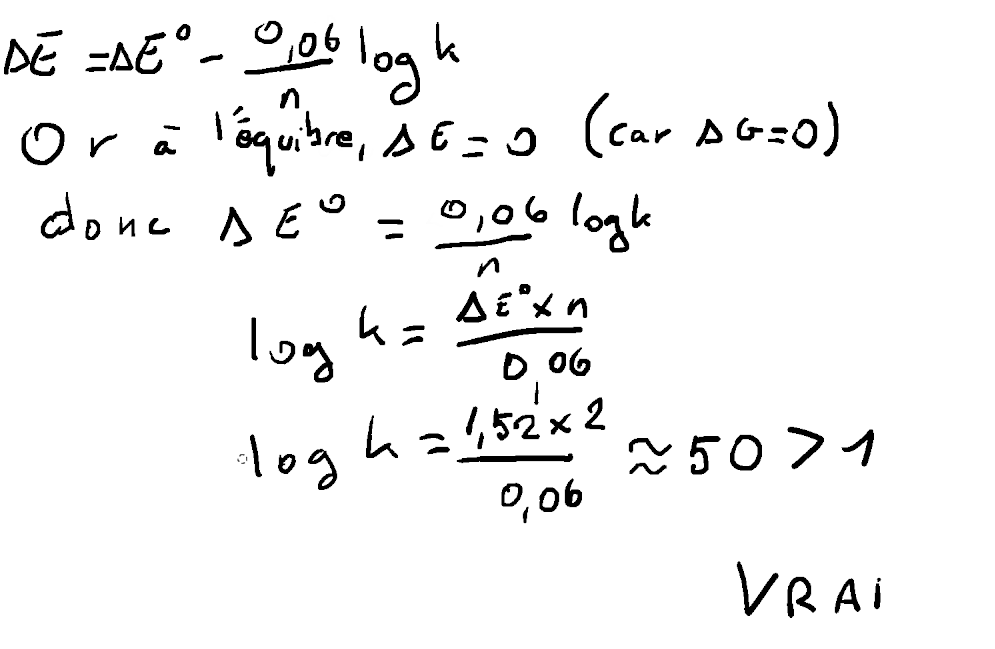 ΔE = ΔE° - 0,06/n log k
Or à l'équibre, ΔE = 0 (car ΔG=0)
donc ΔE° = 0,06/n log k
log k = ΔE° x n / 0,06
log k = 1,52 x 2 / 0,06 ≈ 50 > 1
VRAi